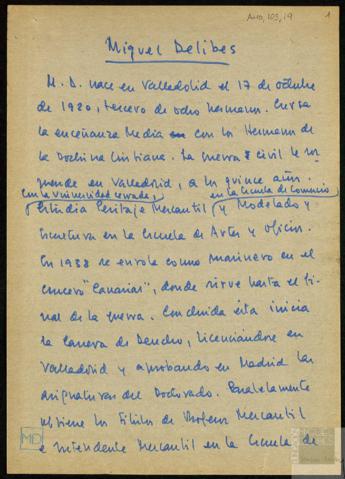 AMD, 103, 19
1
Miguel Delibes
M. D. nace en Valladolid el 17 de octubre
de 1920, tercero de ocho hermanos. Cursa
la enseñanza Media con los Hermanos de
la Doctrina Cristiana. La guerra civil le sor-
prende en Valladolid, a los quince años.
Con la Universidad cerrada, en la Escuela de Comercio
estudia Peritaje Mercantil y Modelado y
Escultura en la Escuela de Artes y Oficios.
En 1938 se enrola como marinero en el
crucero "Canarias", donde sirve hasta el fi-
nal de la guerra. Concluida ésta inicia
la Carrera de Derecho, licenciándose en
Valladolid y aprobando en Madrid las
asignaturas del Doctorado. Paralelamente
obtiene los títulos de Profesor Mercantil
e Intendente Mercantil en la Escuela de
MD